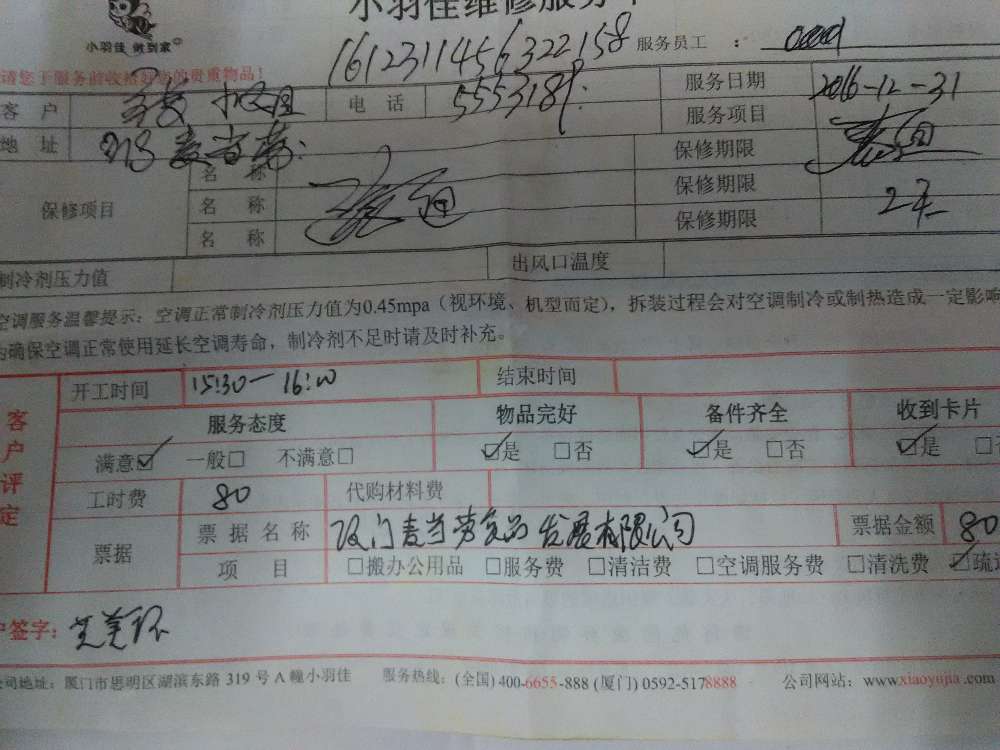 小羽佳维修服务单
小羽佳 做到家
1612311456322158 服务员工 :
请您于服务前收拾好您的贵重物品!
客 户 电 话 5553189 服务日期 2016-12-31
地 址 麦当劳 服务项目
名 称 保修期限
保修项目 名 称 保修期限
名 称 保修期限
制冷剂压力值 出风口温度
空调服务温馨提示:空调正常制冷剂压力值为0.45mpa(视环境、机型而定),拆装过程会对空调制冷或制热造成一定影响
为确保空调正常使用延长空调寿命,制冷剂不足时请及时补充。
客户评定
开工时间 15:30—16:00 结束时间
服务态度 物品完好 备件齐全 收到卡片
满意☑ 一般□ 不满意□ ☑是 □否 ☑是 □否 ☑是
工时费 80 代购材料费
票据 票据名称 厦门麦当劳食品发展有限公司 票据金额 80
项 目 □搬办公用品 □服务费 □清洁费 □空调服务费 □清洗费 ☑疏通
户签字:
公司地址:厦门市思明区湖滨东路 319 号 A 幢小羽佳 服务热线:(全国) 400-6655-888 (厦门) 0592-5178888 公司网站:www.xiaoyujia.com